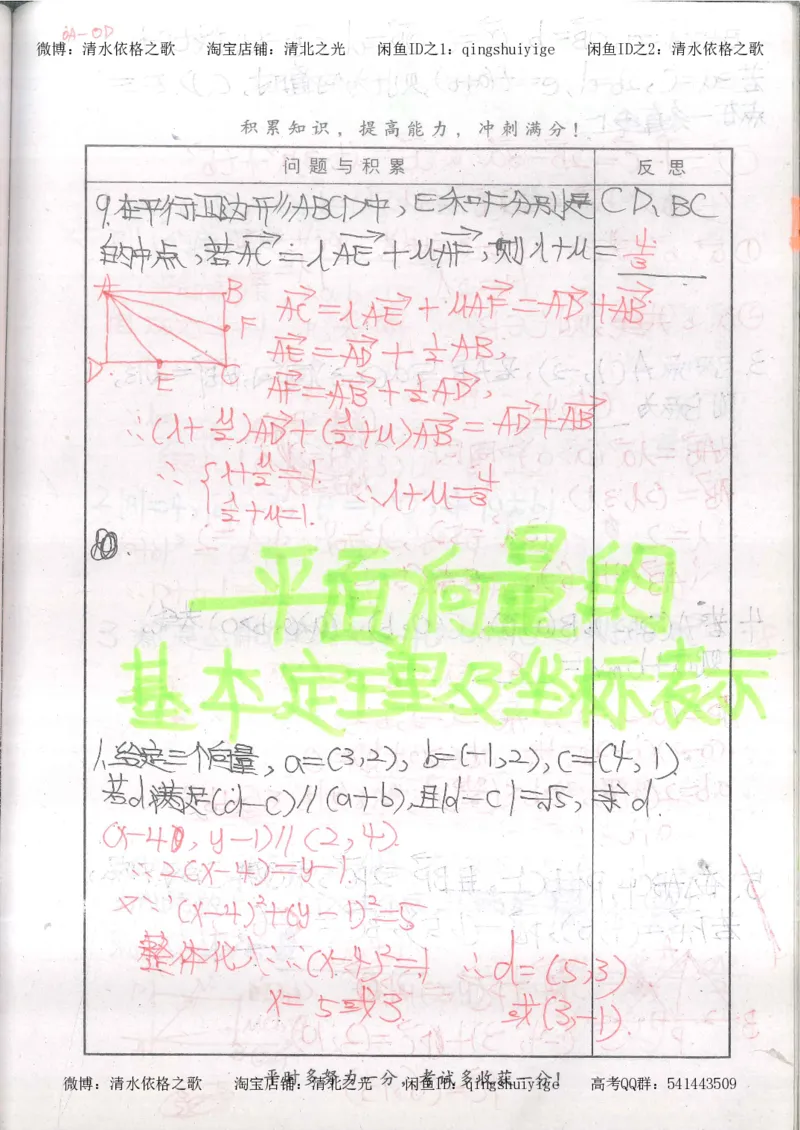 OA-OD
微博：清水依格之歌 淘宝店铺：清北之光 闲鱼ID之1：qingshuiyige 闲鱼ID之2：清水依格之歌
积累知识，提高能力，冲刺满分！
问题与积累 反思
9.在平行四边形ABCD中，E和F分别是CD、BC
的中点，若AC=λAE+μAF，则λ+μ=4/3
A B
F
D E C
AC=λAE+μAF=AB+AB
AE=AD+1/2AB，
AF=AB+1/2AD，
∴(λ+μ/2)AD+(λ/2+μ)AB=AD+AB
∴{λ+μ/2=1.
λ/2+μ=1. ∴λ+μ=4/3
10.
平面向量的
基本定理及坐标表示
1.给定三个向量，a=(3,2)，b=(-1,2)，c=(4,1)
若d满足(d-c)//(a+b)，且|d-c|=√5，求d.
(x-4，y-1)//(2,4).
∴2(x-4)=y-1.
又∵(x-4)²+(y-1)²=5
整体代入∴(x-4)²=1 ∴d=(5,3)
x=5或3 或(3,-1).
平时多努力一分，考试多收获一分！
微博：清水依格之歌 淘宝店铺：清北之光 闲鱼ID：qingshuiyige 高考QQ群：541443509